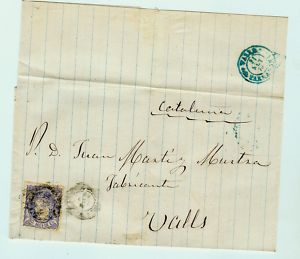 VALLS
Cataluña
S. D. Juan Martí y Mastra
Fabricante
Valls